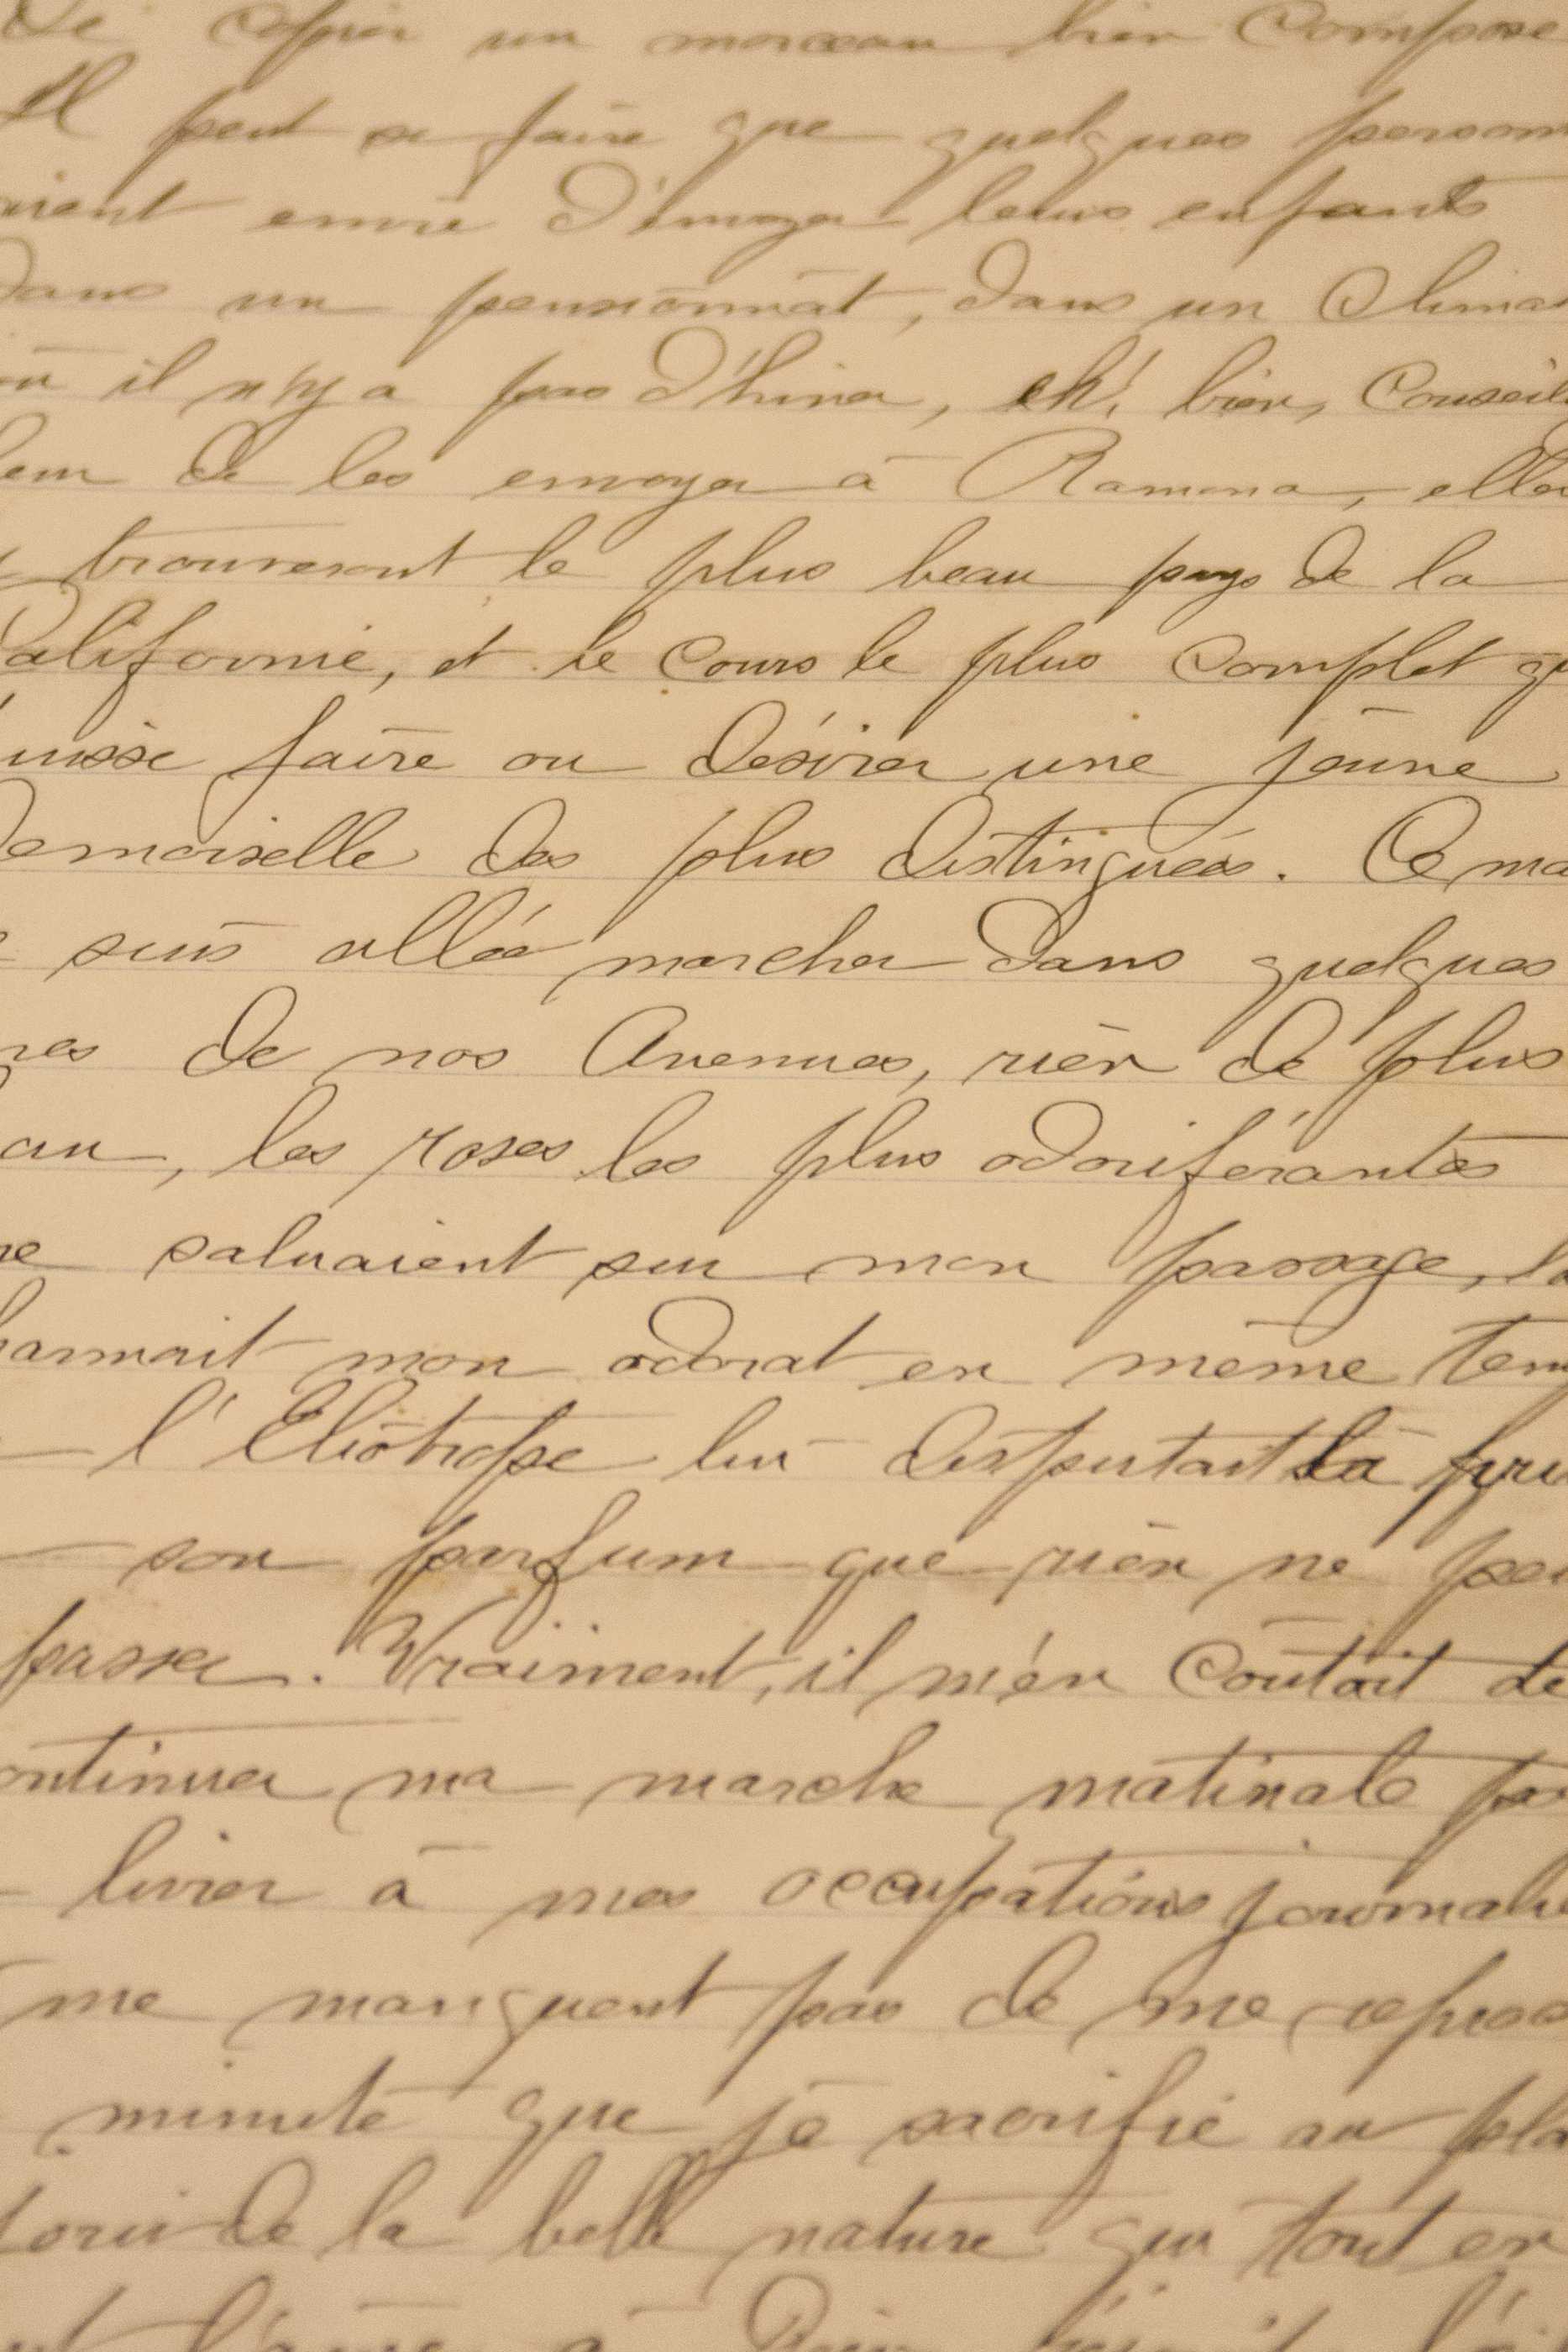 de copier un morceau bien compose
Il peut se faire que quelques person
aient envie d'envoyer leurs enfants
dans un pensionnat, dans un Climat
où il n'y a pas d'hiver, eh! bien, Conseil
leur de les envoyer à Ramona, elles
y trouveront le plus beau pays de la
Californie, et le cours le plus complet qu
puisse faire ou désirer une jeune
Demoiselle des plus distinguées. Ce ma
suis allée marcher dans quelques
nes de nos Avenues, rien de plus
eau, les roses les plus odoriférantes
me saluaient sur mon passage, la
harmait mon odorat en même tem
l'Eliotrope lui disputait la pri
son parfum que rien ne peu
passer. Vraiment, il m'en coutait de
ontinuer ma marche matinale po
livrer à mes occupations journaliè
me manquent pas de me reproc
minute que je sacrifie au pla
de la belle nature qui tout en